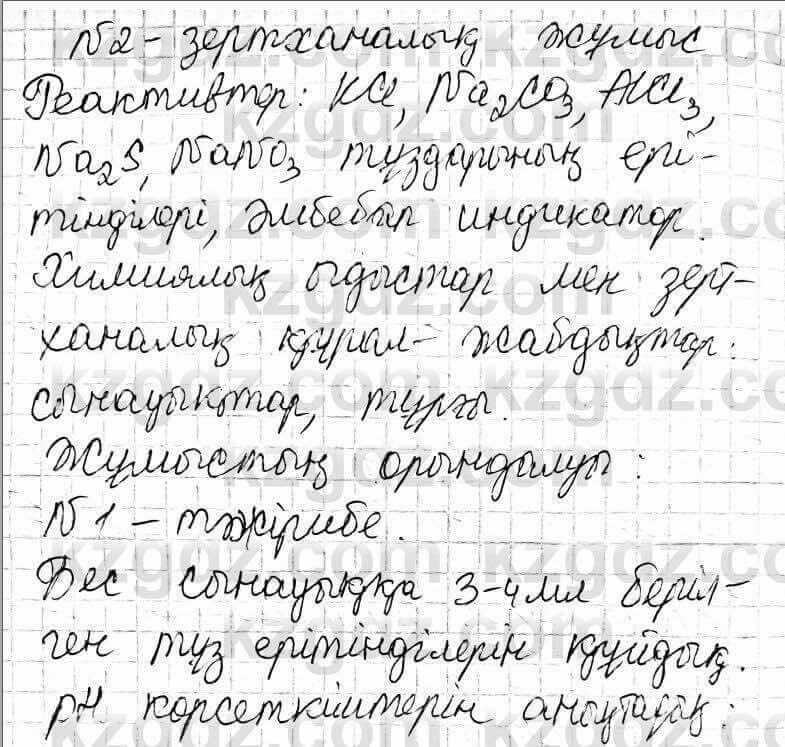 №2 - зертханалық жұмыс
Реактивтер: KCl, Na2CO3, AlCl3,
Na2S, NaNO3 тұздарының ері-
тінділері, әмбебап индикатор.
Химиялық ыдыстар мен зерт-
ханалық құрал-жабдықтар:
сынауықтар, тұрғы.
Жұмыстың орындалуы:
№1 - тәжірибе.
Бес сынауыққа 3-4мл беріл-
ген тұз ерітінділерін құйдық.
pH көрсеткіштерін анықтадық:
kzgdz.com